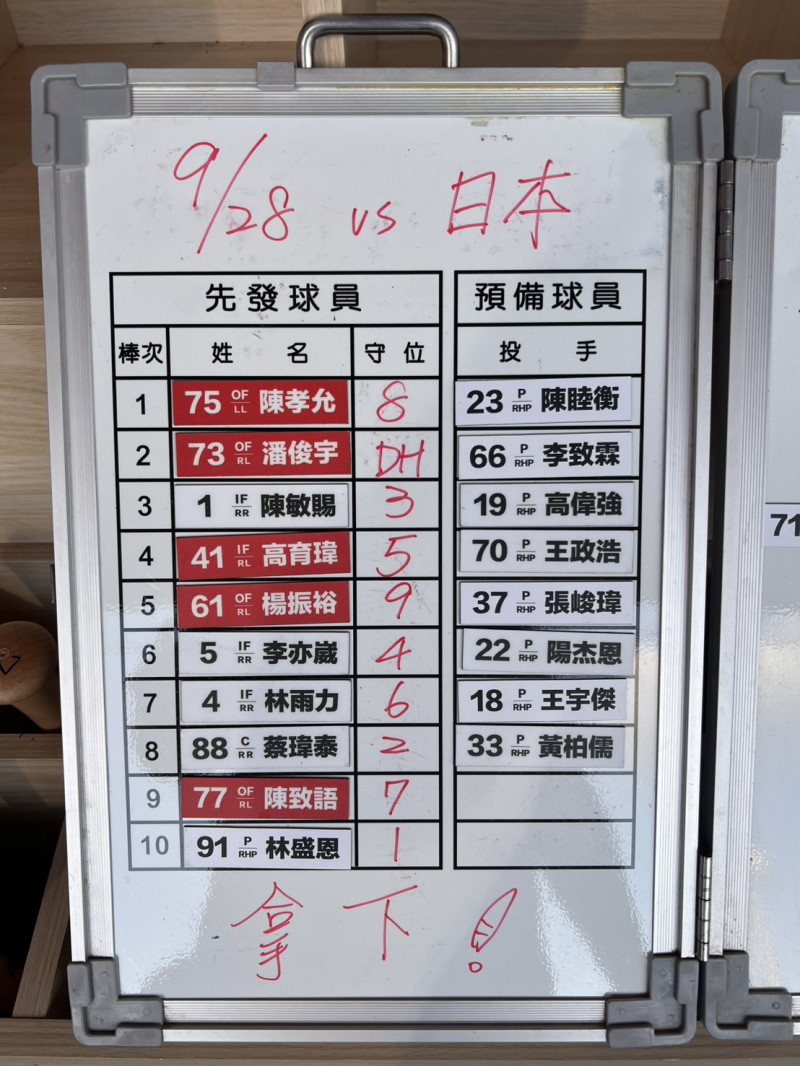 9/28 vs 日本
先發球員 預備球員
棒次 姓名 守位 投手
1 75 OF LL 陳孝允 8 23 P RHP 陳睦衡
2 73 OF RL 潘俊宇 DH 66 P RHP 李致霖
3 1 IF RR 陳敏賜 3 19 P RHP 高偉強
4 41 IF RL 高育瑋 5 70 P RHP 王政浩
5 61 OF RL 楊振裕 9 37 P RHP 張峻瑋
6 5 IF RR 李亦崴 4 22 P RHP 陽杰恩
7 4 IF RR 林雨力 6 18 P RHP 王宇傑
8 88 C RR 蔡瑋泰 2 33 P RHP 黃柏儒
9 77 OF RL 陳致語 7
10 91 P RHP 林盛恩 1
拿下!
71